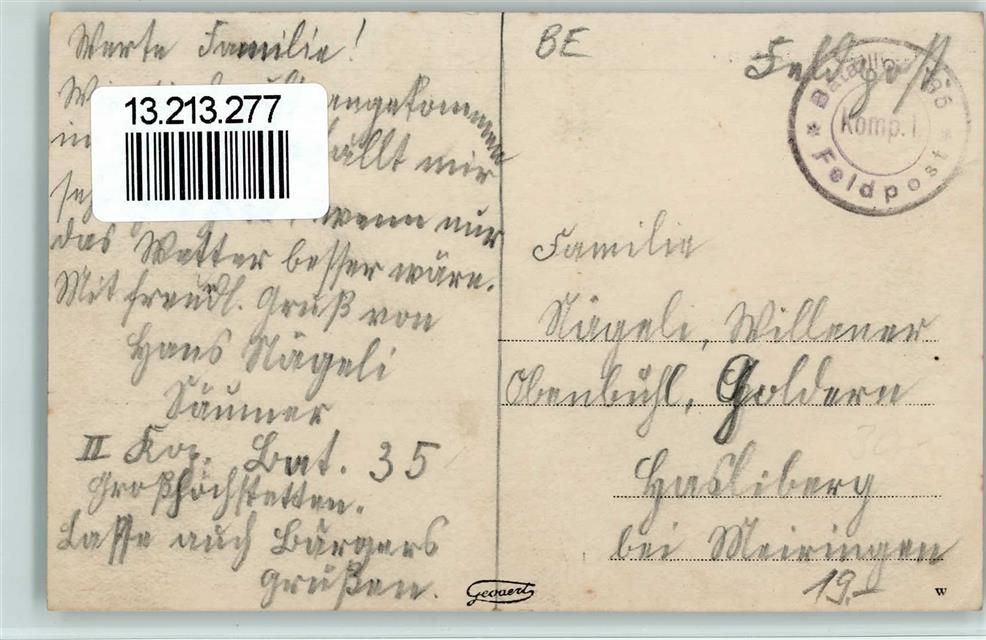 Werte Familie!
13.213.277
angekommen
mir
wenn nur
das Wetter besser wäre.
Mit freundl. Gruß von
Hans Nägeli
Säumer
II Kop. Bat. 35
Großhöchstetten.
Lasse auch Bärgers
grüßen.
BE
Feldpost
Bataillon 35
Komp. I.
* Feldpost *
Familie
Nägeli, Willener
Obenbühl, Goldern
Hasliberg
bei Meiringen
19.-
Gevaert
W